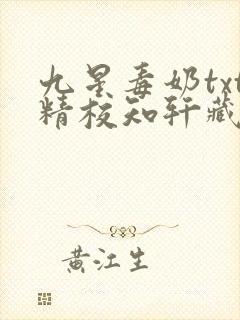 九星毒奶txt
精校知轩藏
黄江生